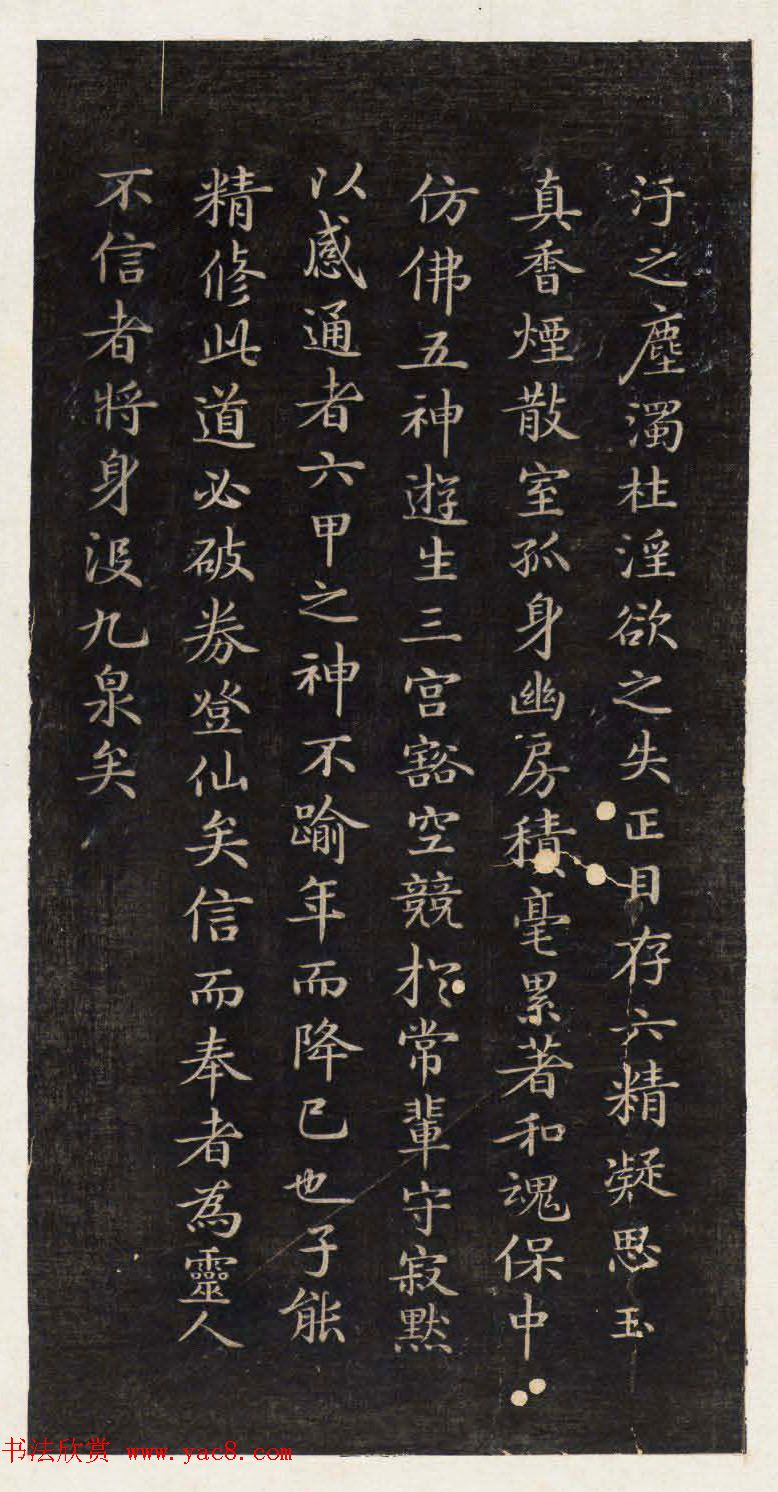 汙之塵濁柱淫欲之失正目存六精凝思玉
真香煙散室孤身幽房積毫累著和魂保中
仿佛五神遊生三宫豁空競於常輩守寂默
以感通者六甲之神不踰年而降已也子能
精修此道必破券登仙矣信而奉者為靈人
不信者將身没九泉矣
书法欣赏 www.yac8.com